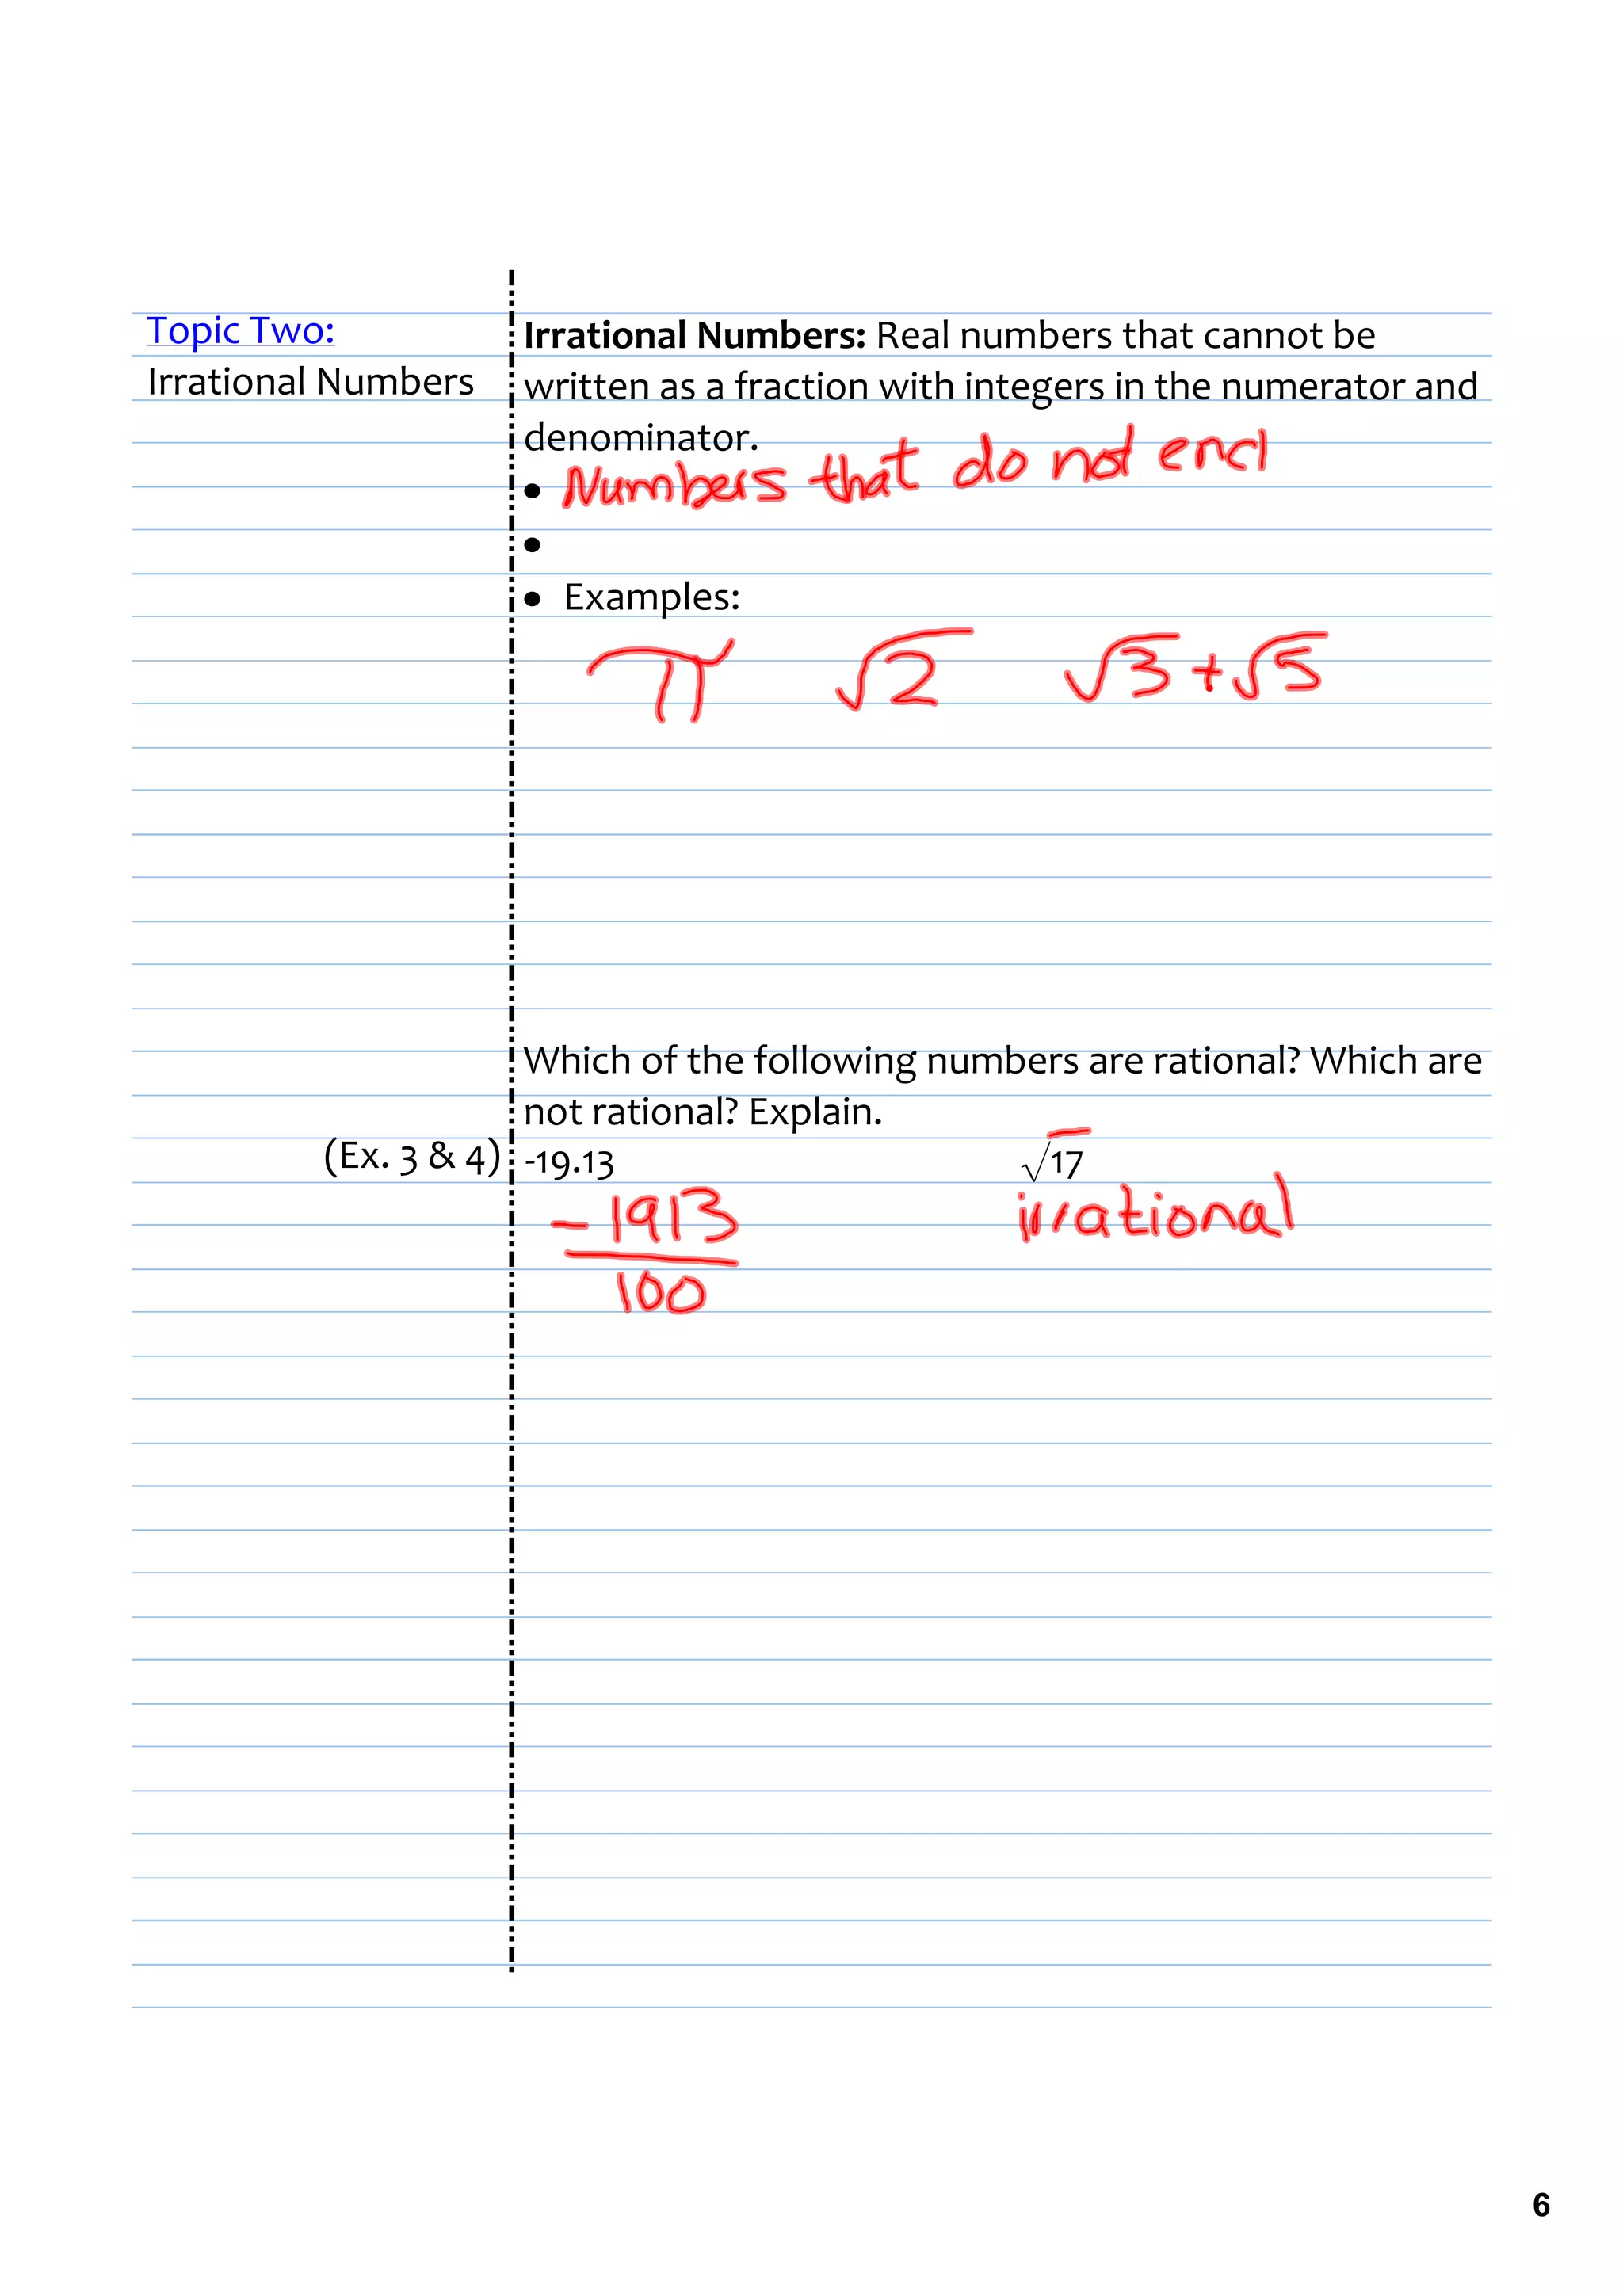 Topic Two:
Irrational Numbers
Irrational Numbers: Real numbers that cannot be
written as a fraction with integers in the numerator and
denominator.
• Numbers that do not end
•
• Examples:
π √2 √3+√5
Which of the following numbers are rational? Which are
not rational? Explain.
(Ex. 3 & 4) -19.13 √17
-1913
100
irrational
6